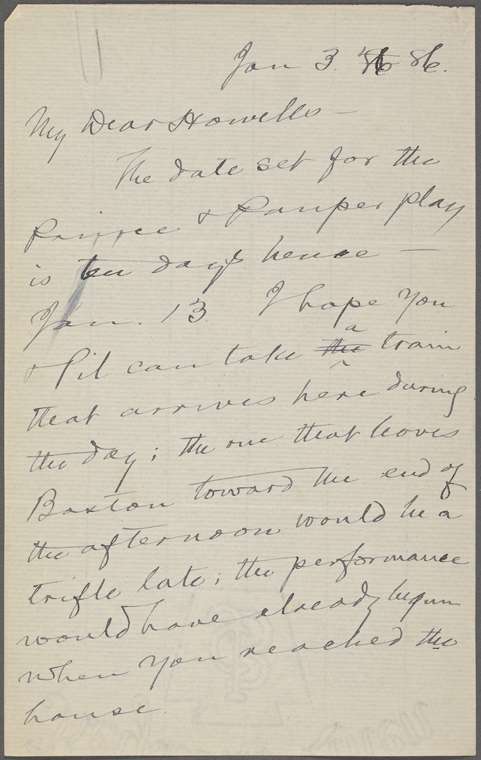 Jan 3. '86.
My Dear Howells —
The date set for the
Prince & Pauper play
is ten days hence —
Jan. 13. I hope you
& Pil can take a train
that arrives here during
the day; the one that leaves
Boston toward the end of
the afternoon would be a
trifle late; the performance
would have already begun
when you reached the
house.